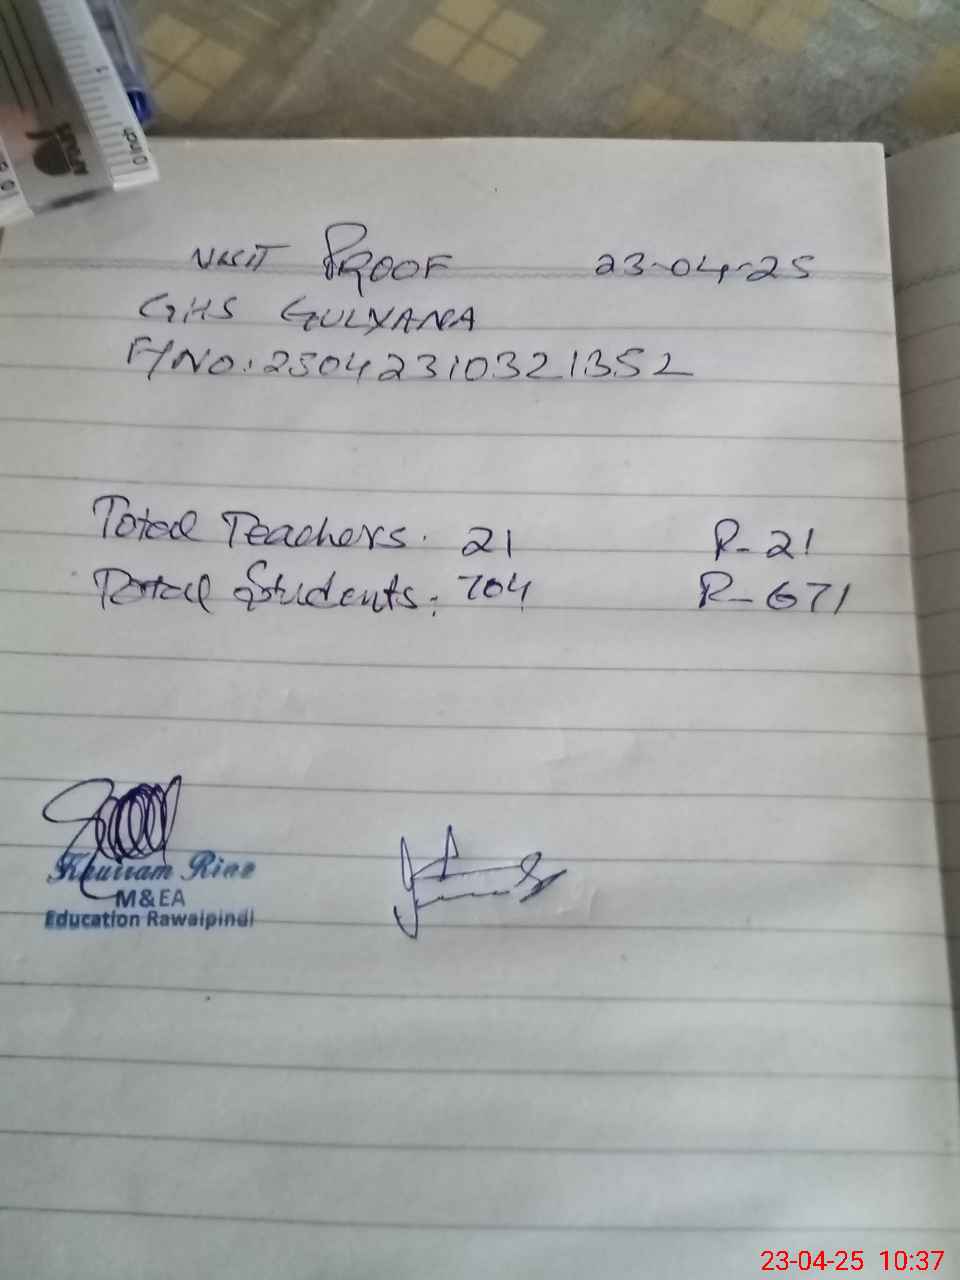 VISIT PROOF 23-04-25
GHS GULYANA
F/NO: 25042310321352
Total Teachers. 21 P-21
Total Students: 704 P-671
Khurram Riaz
M&EA
Education Rawalpindi
23-04-25 10:37